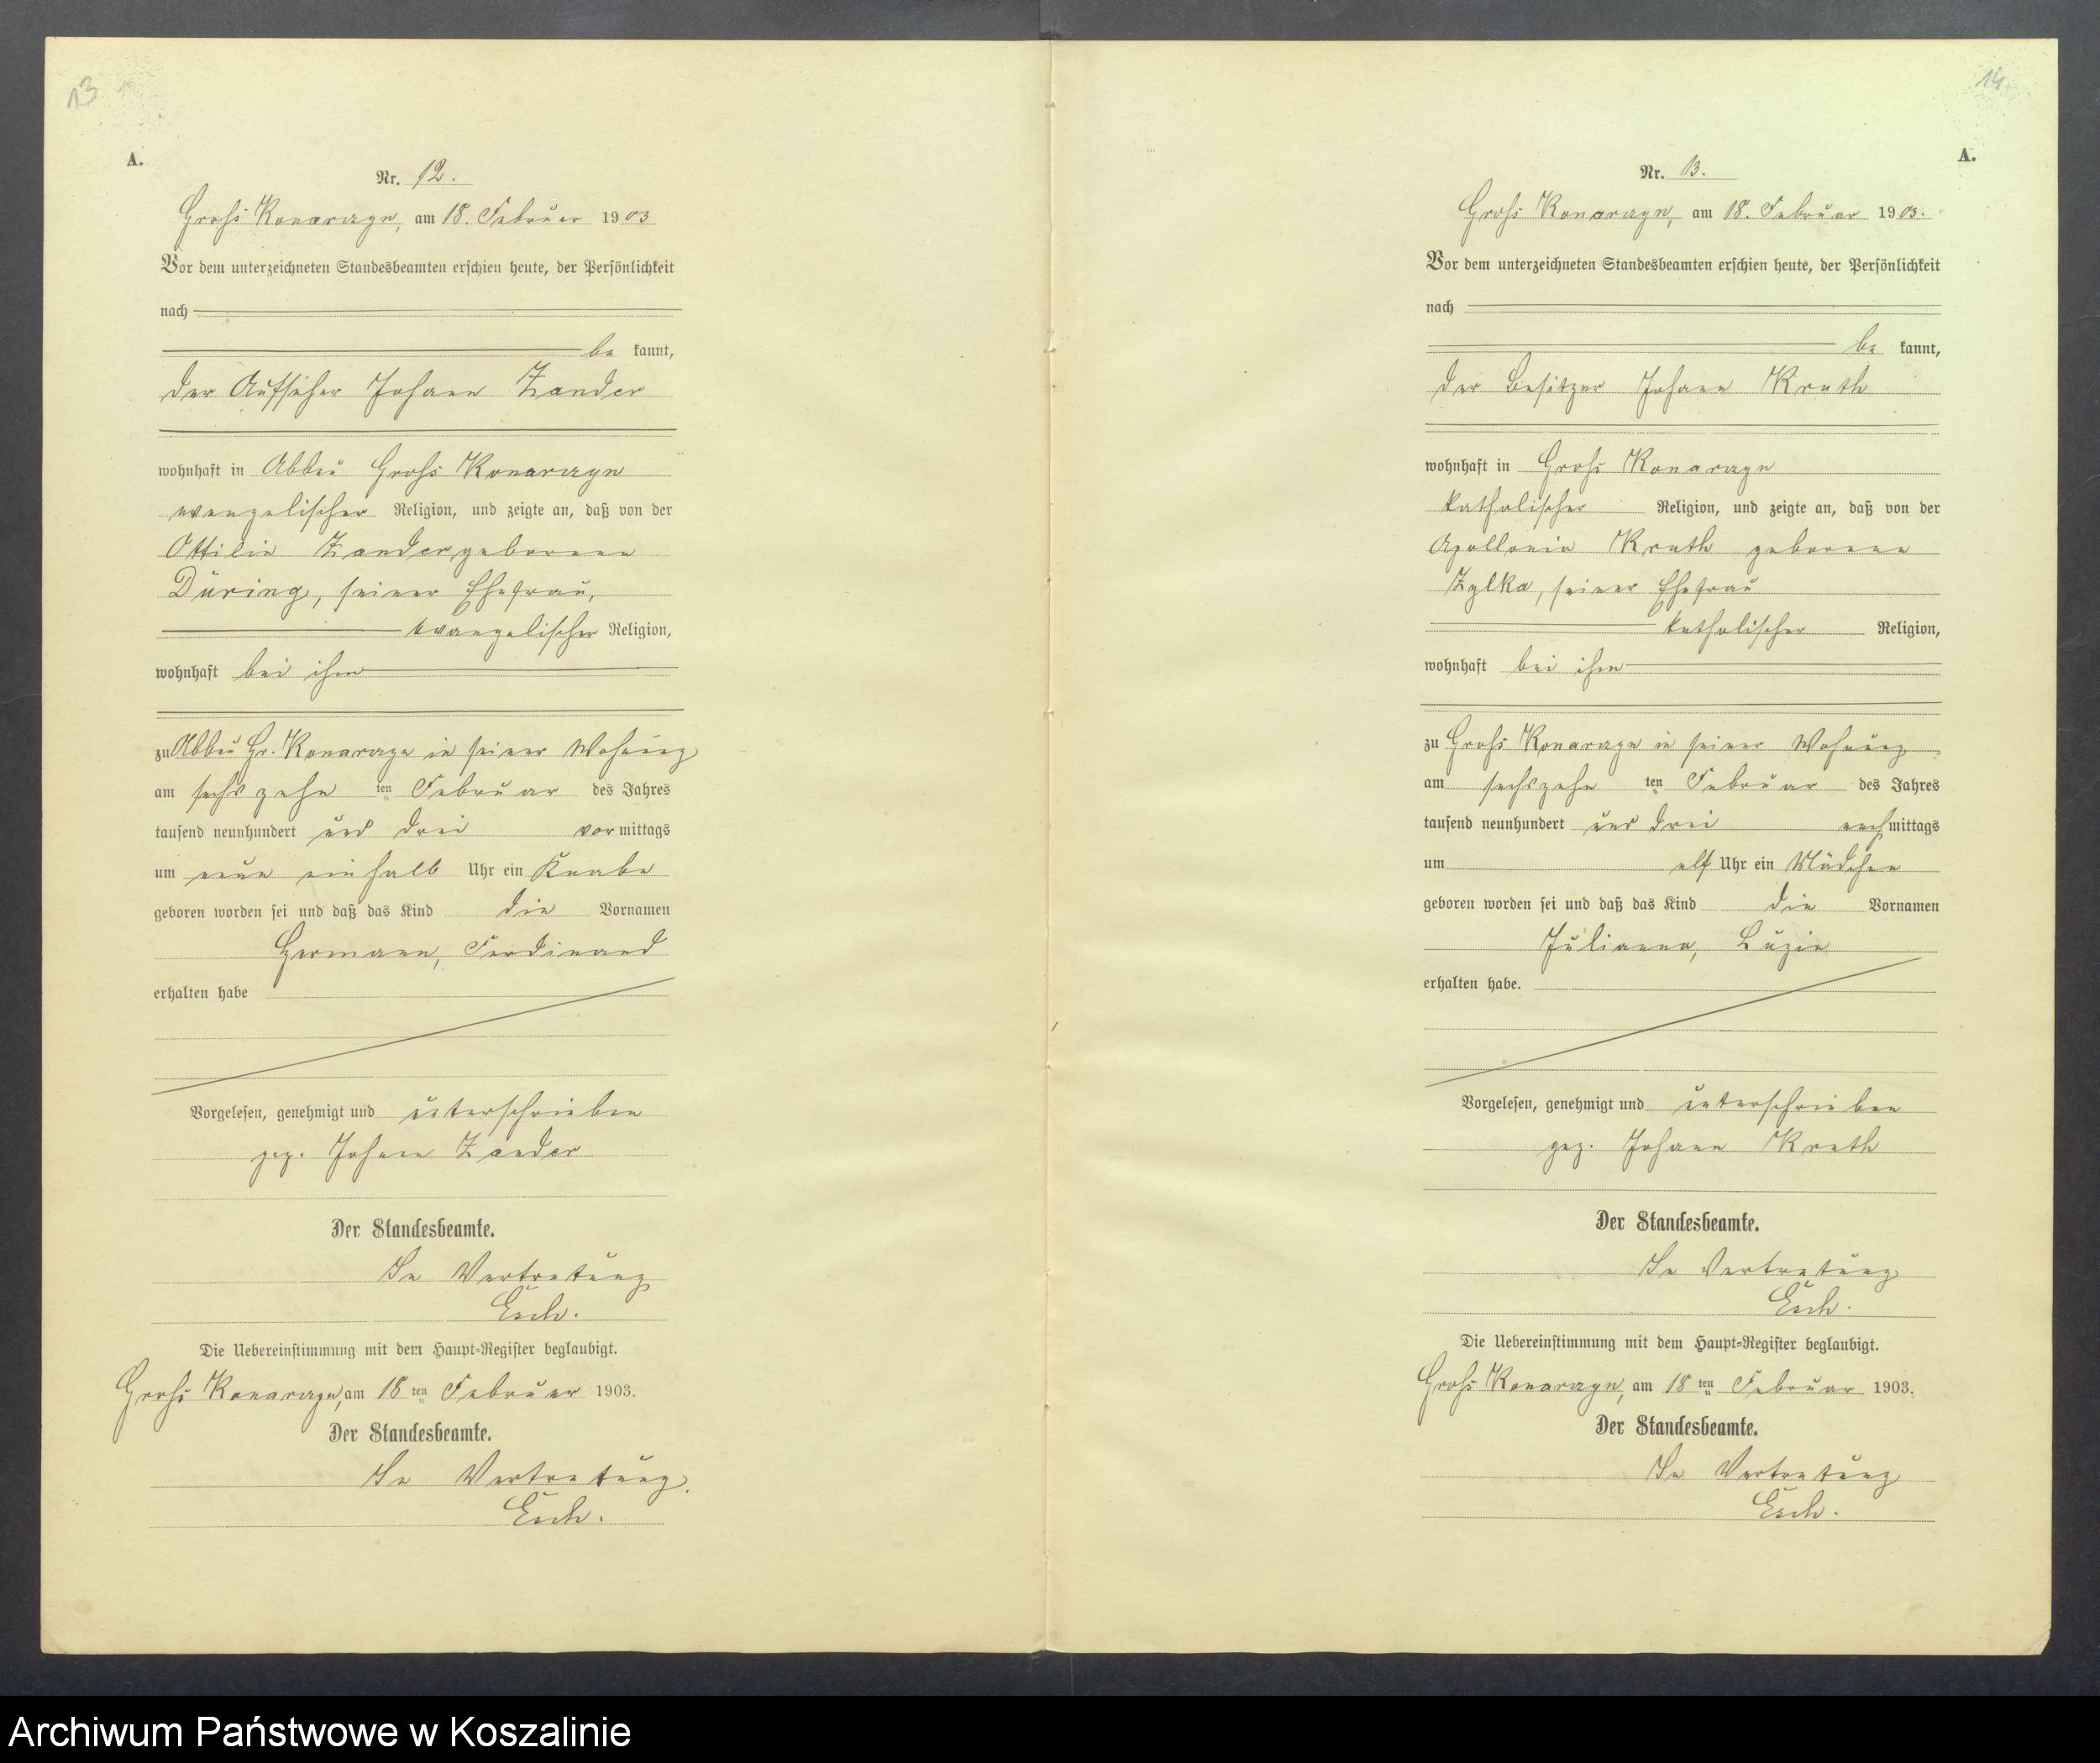 13
A.
Nr. 12.
Groß Konarczyn, am 18. Februar 1903
Vor dem unterzeichneten Standesbeamten erschien heute, der Persönlichkeit
nach
be kannt,
der Aufseher Johann Zander
wohnhaft in Abbau Groß Konarczyn
evangelischer Religion, und zeigte an, daß von der
Ottilie Zander geborenen
Düring, seiner Ehefrau,
evangelischer Religion,
wohnhaft bei ihm
zu Abbau Gr. Konarczyn in seiner Wohnung
am sechszehn ten Februar des Jahres
tausend neunhundert und drei vor mittags
um neun einhalb Uhr ein Knabe
geboren worden sei und daß das Kind die Vornamen
Hermann, Ferdinand
erhalten habe
Vorgelesen, genehmigt und unterschrieben
gez. Johann Zander
Der Standesbeamte.
In Vertretung
Esch.
Die Uebereinstimmung mit dem Haupt-Register beglaubigt.
Groß Konarczyn, am 18 ten Februar 1903.
Der Standesbeamte.
In Vertretung.
Esch.
14
A.
Nr. 13.
Groß Konarczyn, am 18. Februar 1903.
Vor dem unterzeichneten Standesbeamten erschien heute, der Persönlichkeit
nach
be kannt,
der Besitzer Johann Kruth
wohnhaft in Groß Konarczyn
katholischer Religion, und zeigte an, daß von der
Apollonia Kruth geborenen
Zylka, seiner Ehefrau
katholischer Religion,
wohnhaft bei ihm
zu Groß Konarczyn in seiner Wohnung
am sechszehn ten Februar des Jahres
tausend neunhundert und drei nach mittags
um elf Uhr ein Mädchen
geboren worden sei und daß das Kind die Vornamen
Julianna, Luzia
erhalten habe.
Vorgelesen, genehmigt und unterschrieben
gez. Johann Kruth
Der Standesbeamte.
In Vertretung
Esch.
Die Uebereinstimmung mit dem Haupt-Register beglaubigt.
Groß Konarczyn, am 18 ten Februar 1903.
Der Standesbeamte.
In Vertretung
Esch.
Archiwum Państwowe w Koszalinie